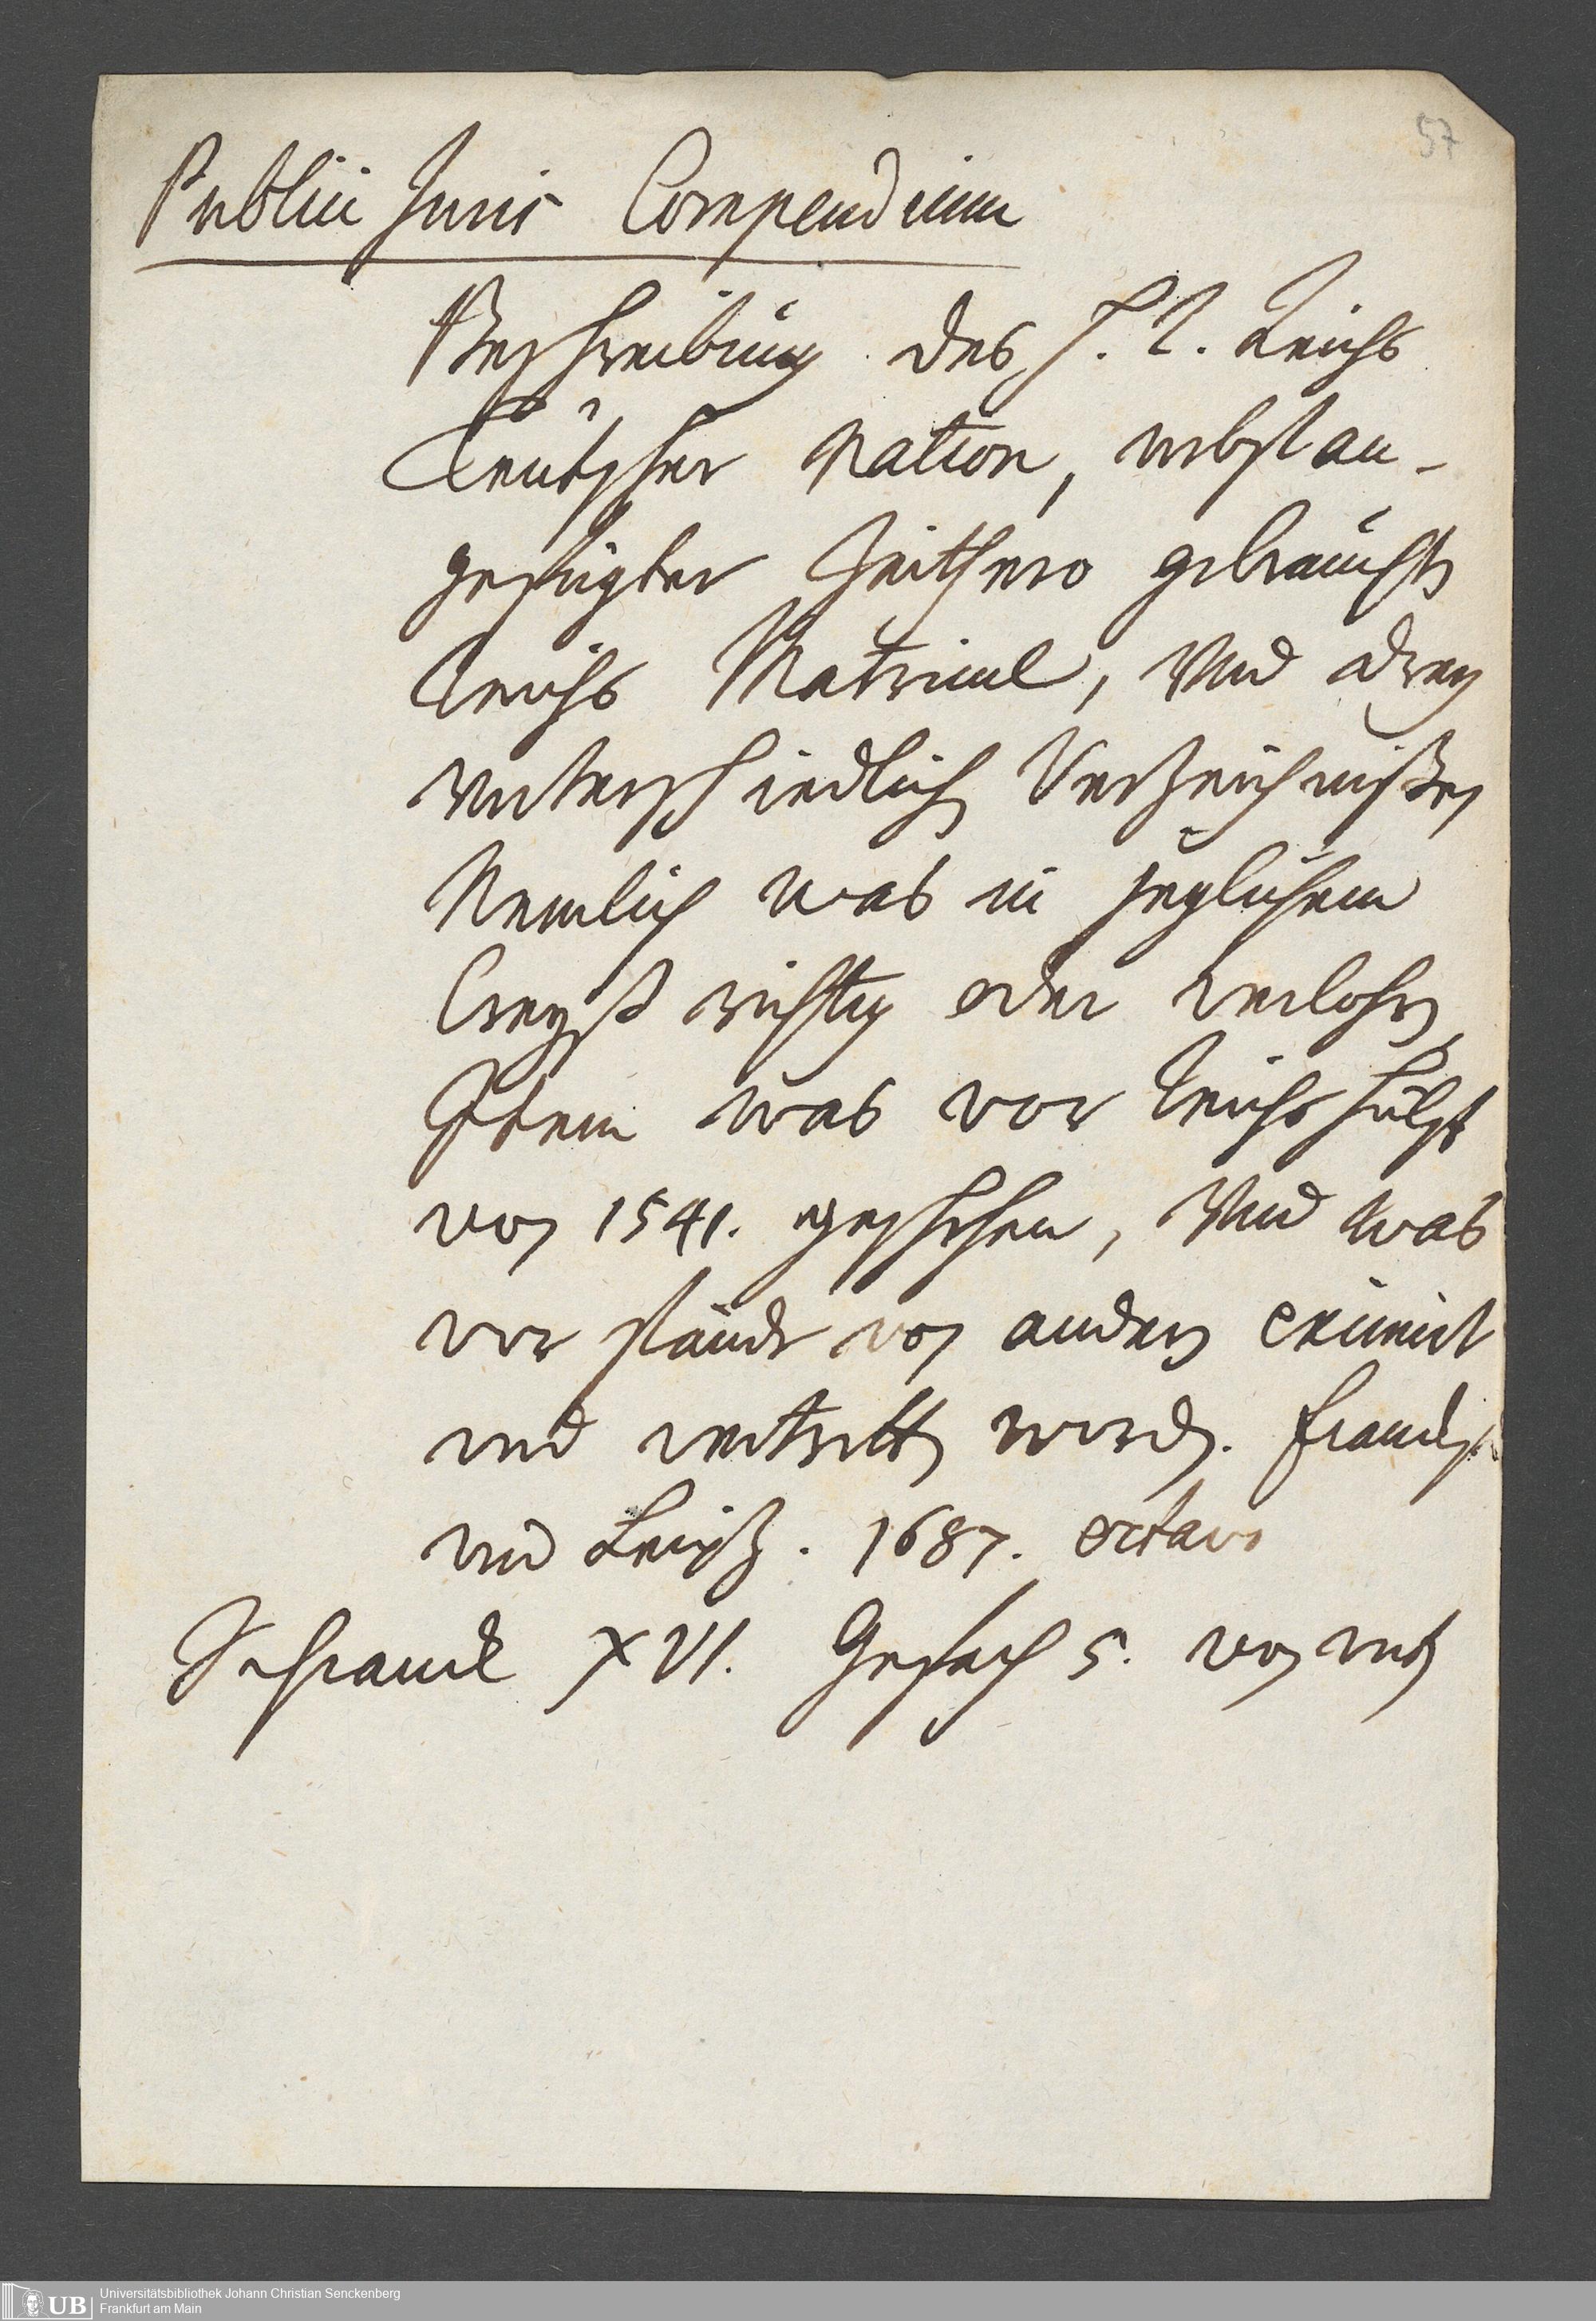 57
Publici Juris Compendium
Beschreibung des H. R. Reichs
Teutscher Nation, nebst an-
gefügter Zeithero gebrauchten
Reichs Matricul, Vnd drey
vnterschiedlichen Verzeichnißen,
Nemlich was in jeglichem
Creyß richtig oder verlohren
Item was vor Reichs hülff
von 1541. geschehen, Vnd was
vor stände von andern eximirt
vnd vertretten worden. Franckf.
vnd Leipz. 1687. octavo
Schranck XVI. Gefach 5. von
Universitätsbibliothek Johann Christian Senckenberg
Frankfurt am Main
UB